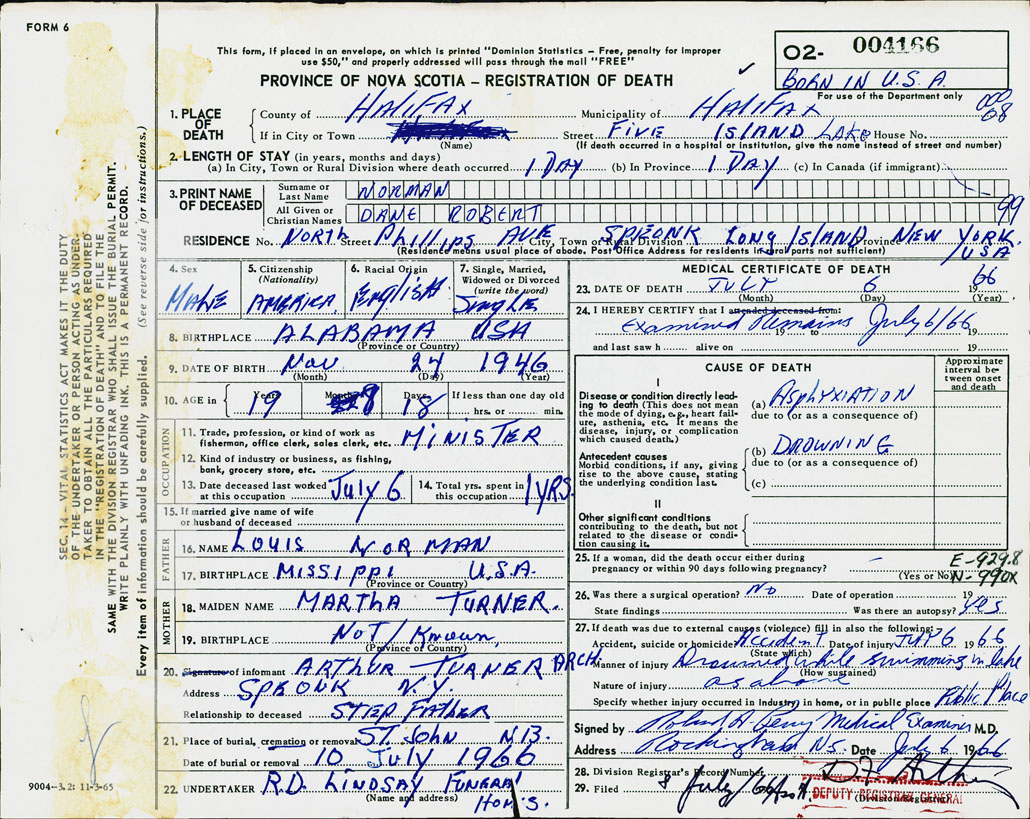 FORM 6
This form, if placed in an envelope, on which is printed "Dominion Statistics – Free, penalty for improper
use $50," and properly addressed will pass through the mail "FREE"
PROVINCE OF NOVA SCOTIA – REGISTRATION OF DEATH
02- 004166
BORN IN U.S.A.
For use of the Department only
1. PLACE OF DEATH
County of HALIFAX Municipality of HALIFAX
If in City or Town Street FIVE ISLAND LAKE House No.
(Name) (If death occurred in a hospital or institution, give the name instead of street and number)
2. LENGTH OF STAY (in years, months and days)
(a) In City, Town or Rural Division where death occurred 1 DAY (b) In Province 1 DAY (c) In Canada (if immigrant)
3. PRINT NAME OF DECEASED
Surname or Last Name NORMAN
All Given or Christian Names DANE ROBERT
99
RESIDENCE No. NORTH Street Phillips AVE City, Town or Rural Division SPEONK LONG ISLAND Province NEW YORK USA
(Residence means usual place of abode. Post Office Address for residents in rural parts not sufficient)
4. Sex MALE
5. Citizenship (Nationality) AMERICA
6. Racial Origin ENGLISH
7. Single, Married, Widowed or Divorced (write the word) SINGLE
8. BIRTHPLACE ALABAMA USA
(Province or Country)
9. DATE OF BIRTH Nov 27 1946
(Month) (Day) (Year)
10. AGE in Years 19 Months 8 Days 18 If less than one day old hrs. or min.
OCCUPATION
11. Trade, profession, or kind of work as fisherman, office clerk, sales clerk, etc. MINISTER
12. Kind of industry or business, as fishing, bank, grocery store, etc.
13. Date deceased last worked at this occupation July 6
14. Total yrs. spent in this occupation 1 YRS.
15. If married give name of wife or husband of deceased
FATHER
16. NAME LOUIS NORMAN
17. BIRTHPLACE MISSIPPI U.S.A.
(Province or Country)
MOTHER
18. MAIDEN NAME MARTHA TURNER.
19. BIRTHPLACE NOT / Known
(Province or Country)
20. Signature of informant ARTHUR TURNER ARCH
Address SPEONK N.Y.
Relationship to deceased STEP FATHER
21. Place of burial, cremation or removal ST. JOHN N.B.
Date of burial or removal 10 July 1966
22. UNDERTAKER R.D. LINDSAY FUNERAL HOM'S.
(Name and address)
MEDICAL CERTIFICATE OF DEATH
23. DATE OF DEATH JULY 6 1966
(Month) (Day) (Year)
24. I HEREBY CERTIFY that I attended deceased from:
Examined Remains July 6/66
19 19
and last saw h alive on 19
CAUSE OF DEATH
Approximate interval between onset and death
I
Disease or condition directly leading to death (This does not mean the mode of dying, e.g., heart failure, asthenia, etc. It means the disease, injury, or complication which caused death.)
(a) ASPHYXIATION
due to (or as a consequence of)
Antecedent causes
Morbid conditions, if any, giving rise to the above cause, stating the underlying condition last.
(b) DROWNING
due to (or as a consequence of)
(c)
II
Other significant conditions contributing to the death, but not related to the disease or condition causing it.
25. If a woman, did the death occur either during pregnancy or within 90 days following pregnancy? –
(Yes or No)
E-929.8
N-990X
26. Was there a surgical operation? No Date of operation 19
State findings Was there an autopsy? Yes
27. If death was due to external causes (violence) fill in also the following:
Accident, suicide or homicide Accident Date of injury JULY 6 1966
(State which)
Manner of injury Drowned while swimming in lake
(How sustained)
Nature of injury as above
Specify whether injury occurred in Industry, in home, or in public place Public Place
Signed by Medical Examiner M.D.
Address Rockingham N.S. Date July 6 1966
28. Division Registrar's Record Number
29. Filed 8 July/66
(Division Registrar)
DEPUTY REGISTRAR GENERAL
SEC. 14 – VITAL STATISTICS ACT MAKES IT THE DUTY
OF THE UNDERTAKER OR PERSON ACTING AS UNDER-
TAKER TO OBTAIN ALL THE PARTICULARS REQUIRED
IN THE "REGISTRATION OF DEATH" AND TO FILE THE
SAME WITH THE DIVISION REGISTRAR WHO SHALL ISSUE THE BURIAL PERMIT.
WRITE PLAINLY WITH UNFADING INK. THIS IS A PERMANENT RECORD.
Every item of information should be carefully supplied. (See reverse side for instructions.)
9004–3.2: 11-3-65